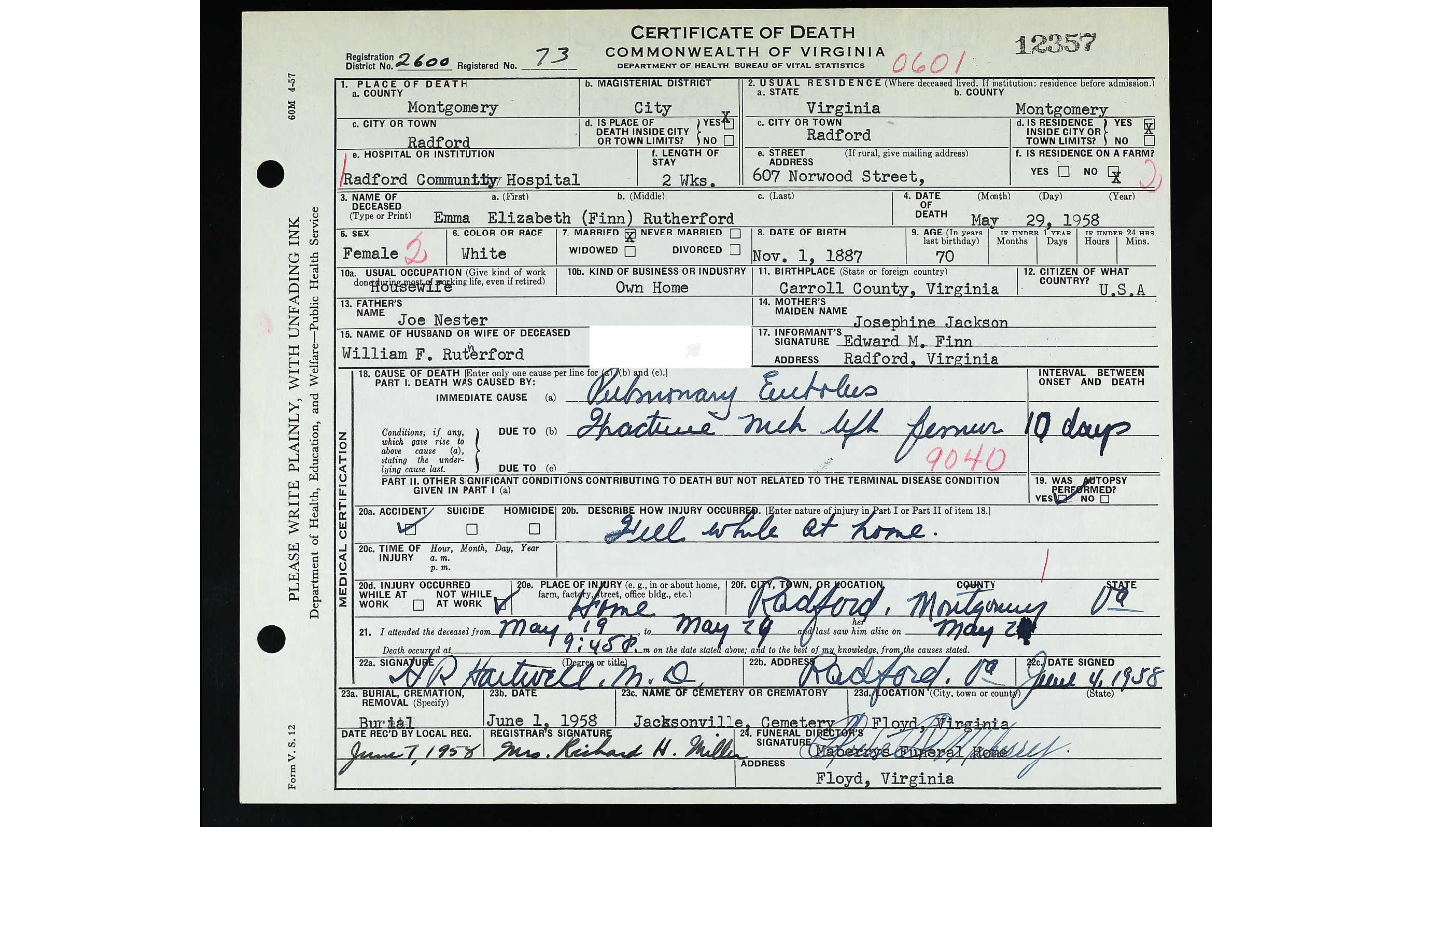 CERTIFICATE OF DEATH
COMMONWEALTH OF VIRGINIA
DEPARTMENT OF HEALTH. BUREAU OF VITAL STATISTICS
Registration District No. 2600 Registered No. 73
0601
12357
60M 4-57
1. PLACE OF DEATH
a. COUNTY
Montgomery
b. MAGISTERIAL DISTRICT
City
2. USUAL RESIDENCE (Where deceased lived. If institution: residence before admission.)
a. STATE
Virginia
b. COUNTY
Montgomery
c. CITY OR TOWN
Radford
d. IS PLACE OF DEATH INSIDE CITY OR TOWN LIMITS? YES X NO
c. CITY OR TOWN
Radford
d. IS RESIDENCE INSIDE CITY OR TOWN LIMITS? YES X NO
e. HOSPITAL OR INSTITUTION
Radford Community Hospital
f. LENGTH OF STAY
2 Wks.
e. STREET ADDRESS (If rural, give mailing address)
607 Norwood Street,
f. IS RESIDENCE ON A FARM?
YES NO X
2
3. NAME OF DECEASED (Type or Print)
a. (First) b. (Middle) c. (Last)
Emma Elizabeth (Finn) Rutherford
4. DATE OF DEATH (Month) (Day) (Year)
May 29, 1958
5. SEX
Female 2
6. COLOR OR RACE
White
7. MARRIED X NEVER MARRIED
WIDOWED DIVORCED
8. DATE OF BIRTH
Nov. 1, 1887
9. AGE (In years last birthday)
70
IF UNDER 1 YEAR
Months Days
IF UNDER 24 HRS.
Hours Mins.
10a. USUAL OCCUPATION (Give kind of work done during most of working life, even if retired)
Housewife
10b. KIND OF BUSINESS OR INDUSTRY
Own Home
11. BIRTHPLACE (State or foreign country)
Carroll County, Virginia
12. CITIZEN OF WHAT COUNTRY?
U.S.A
13. FATHER'S NAME
Joe Nester
14. MOTHER'S MAIDEN NAME
Josephine Jackson
15. NAME OF HUSBAND OR WIFE OF DECEASED
William F. Rutherford
17. INFORMANT'S SIGNATURE Edward M. Finn
ADDRESS Radford, Virginia
MEDICAL CERTIFICATION
18. CAUSE OF DEATH [Enter only one cause per line for (a) (b) and (c).]
PART I. DEATH WAS CAUSED BY:
INTERVAL BETWEEN ONSET AND DEATH
IMMEDIATE CAUSE (a) Pulmonary Embolus
Conditions, if any, which gave rise to above cause (a), stating the underlying cause last.
DUE TO (b) Fracture neck left femur 10 days
9040
DUE TO (c)
PART II. OTHER SIGNIFICANT CONDITIONS CONTRIBUTING TO DEATH BUT NOT RELATED TO THE TERMINAL DISEASE CONDITION GIVEN IN PART I (a)
19. WAS AUTOPSY PERFORMED?
YES NO
20a. ACCIDENT SUICIDE HOMICIDE
20b. DESCRIBE HOW INJURY OCCURRED. [Enter nature of injury in Part I or Part II of item 18.]
Fell while at home.
20c. TIME OF INJURY Hour, Month, Day, Year
a. m.
p. m.
20d. INJURY OCCURRED
WHILE AT WORK NOT WHILE AT WORK
20e. PLACE OF INJURY (e. g., in or about home, farm, factory, street, office bldg., etc.)
Home
20f. CITY, TOWN, OR LOCATION COUNTY STATE
Radford, Montgomery Va
21. I attended the deceased from May 19 to May 29 and last saw him her alive on May
Death occurred at 9:45 P. m on the date stated above; and to the best of my knowledge, from the causes stated.
22a. SIGNATURE (Degree or title)
H P Hartwell, M. D.
22b. ADDRESS
Radford, Va
22c. DATE SIGNED
June 4, 1958
23a. BURIAL, CREMATION, REMOVAL (Specify)
Burial
23b. DATE
June 1, 1958
23c. NAME OF CEMETERY OR CREMATORY
Jacksonville, Cemetery
23d. LOCATION (City, town or county) (State)
Floyd, Virginia
DATE REC'D BY LOCAL REG.
June 7, 1958
REGISTRAR'S SIGNATURE
Mrs. Richard H. Miller
24. FUNERAL DIRECTOR'S SIGNATURE
Maberrys Funeral Home
ADDRESS
Floyd, Virginia
PLEASE WRITE PLAINLY, WITH UNFADING INK
Department of Health, Education, and Welfare—Public Health Service
Form V. S. 12